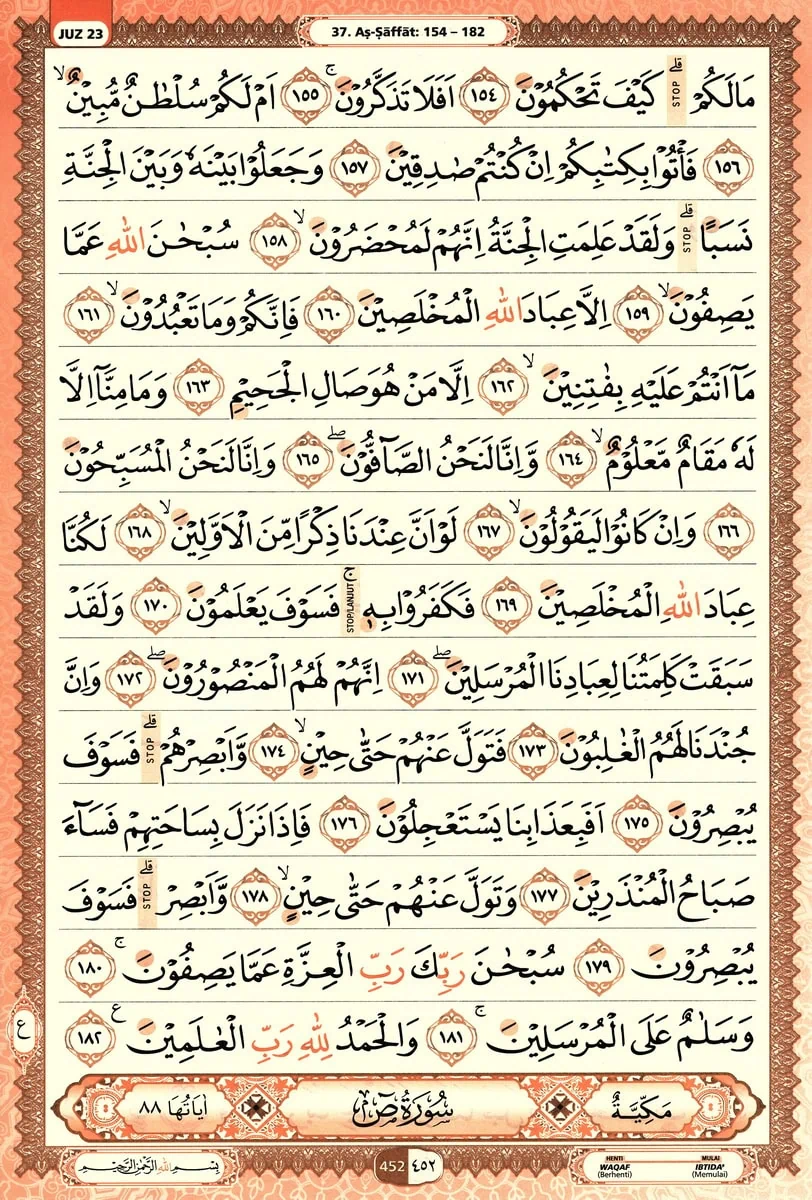 JUZ 23
37. Aṣ-Ṣāffāt: 154 – 182
مَا لَكُمْۗ STOP كَيْفَ تَحْكُمُوْنَ ١٥٤ اَفَلَا تَذَكَّرُوْنَۚ ١٥٥ اَمْ لَكُمْ سُلْطٰنٌ مُّبِيْنٌۙ
١٥٦ فَأْتُوْا بِكِتٰبِكُمْ اِنْ كُنْتُمْ صٰدِقِيْنَ ١٥٧ وَجَعَلُوْا بَيْنَهٗ وَبَيْنَ الْجِنَّةِ
نَسَبًاۗ STOP وَلَقَدْ عَلِمَتِ الْجِنَّةُ اِنَّهُمْ لَمُحْضَرُوْنَۙ ١٥٨ سُبْحٰنَ اللّٰهِ عَمَّا
يَصِفُوْنَۙ ١٥٩ اِلَّا عِبَادَ اللّٰهِ الْمُخْلَصِيْنَ ١٦٠ فَاِنَّكُمْ وَمَا تَعْبُدُوْنَۙ ١٦١
مَآ اَنْتُمْ عَلَيْهِ بِفٰتِنِيْنَۙ ١٦٢ اِلَّا مَنْ هُوَ صَالِ الْجَحِيْمِ ١٦٣ وَمَا مِنَّآ اِلَّا
لَهٗ مَقَامٌ مَّعْلُوْمٌۙ ١٦٤ وَّاِنَّا لَنَحْنُ الصَّاۤفُّوْنَۖ ١٦٥ وَاِنَّا لَنَحْنُ الْمُسَبِّحُوْنَ
١٦٦ وَاِنْ كَانُوْا لَيَقُوْلُوْنَۙ ١٦٧ لَوْ اَنَّ عِنْدَنَا ذِكْرًا مِّنَ الْاَوَّلِيْنَۙ ١٦٨ لَكُنَّا
عِبَادَ اللّٰهِ الْمُخْلَصِيْنَ ١٦٩ فَكَفَرُوْا بِهٖۚ STOP/LANJUT فَسَوْفَ يَعْلَمُوْنَ ١٧٠ وَلَقَدْ
سَبَقَتْ كَلِمَتُنَا لِعِبَادِنَا الْمُرْسَلِيْنَۖ ١٧١ اِنَّهُمْ لَهُمُ الْمَنْصُوْرُوْنَۖ ١٧٢ وَاِنَّ
جُنْدَنَا لَهُمُ الْغٰلِبُوْنَ ١٧٣ فَتَوَلَّ عَنْهُمْ حَتّٰى حِيْنٍۙ ١٧٤ وَّاَبْصِرْهُمْۗ STOP فَسَوْفَ
يُبْصِرُوْنَ ١٧٥ اَفَبِعَذَابِنَا يَسْتَعْجِلُوْنَ ١٧٦ فَاِذَا نَزَلَ بِسَاحَتِهِمْ فَسَاۤءَ
صَبَاحُ الْمُنْذَرِيْنَ ١٧٧ وَتَوَلَّ عَنْهُمْ حَتّٰى حِيْنٍۙ ١٧٨ وَّاَبْصِرْۗ STOP فَسَوْفَ
يُبْصِرُوْنَ ١٧٩ سُبْحٰنَ رَبِّكَ رَبِّ الْعِزَّةِ عَمَّا يَصِفُوْنَۚ ١٨٠
وَسَلٰمٌ عَلَى الْمُرْسَلِيْنَۚ ١٨١ وَالْحَمْدُ لِلّٰهِ رَبِّ الْعٰلَمِيْنَ ࣖ ١٨٢
ع
مَكِّيَّةٌ سُوْرَةُ صۤ اٰيَاتُهَا ٨٨
بِسْمِ اللّٰهِ الرَّحْمٰنِ الرَّحِيْمِ
452 ٤٥٢
HENTI MULAI
WAQAF IBTIDA'
(Berhenti) (Memulai)